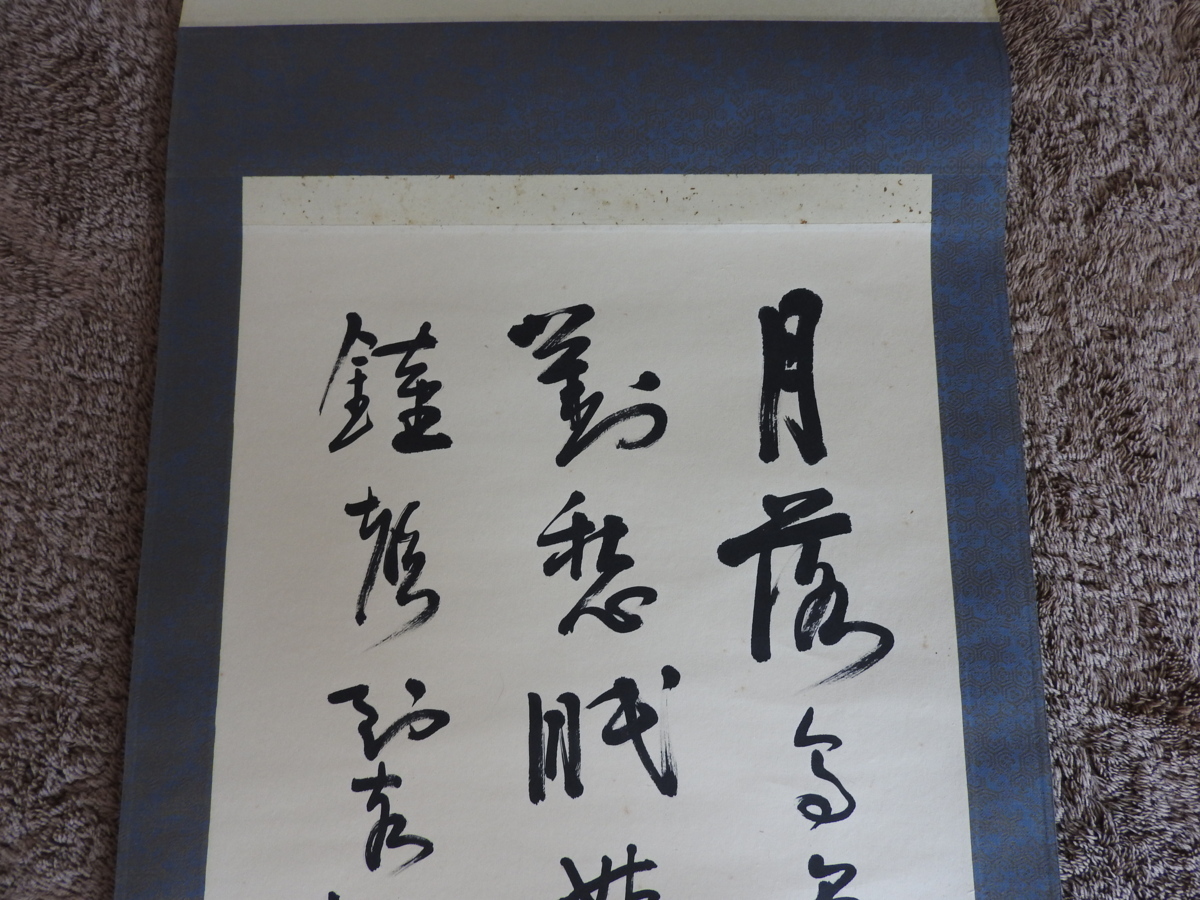 月落烏
對愁眠
鐘聲到客